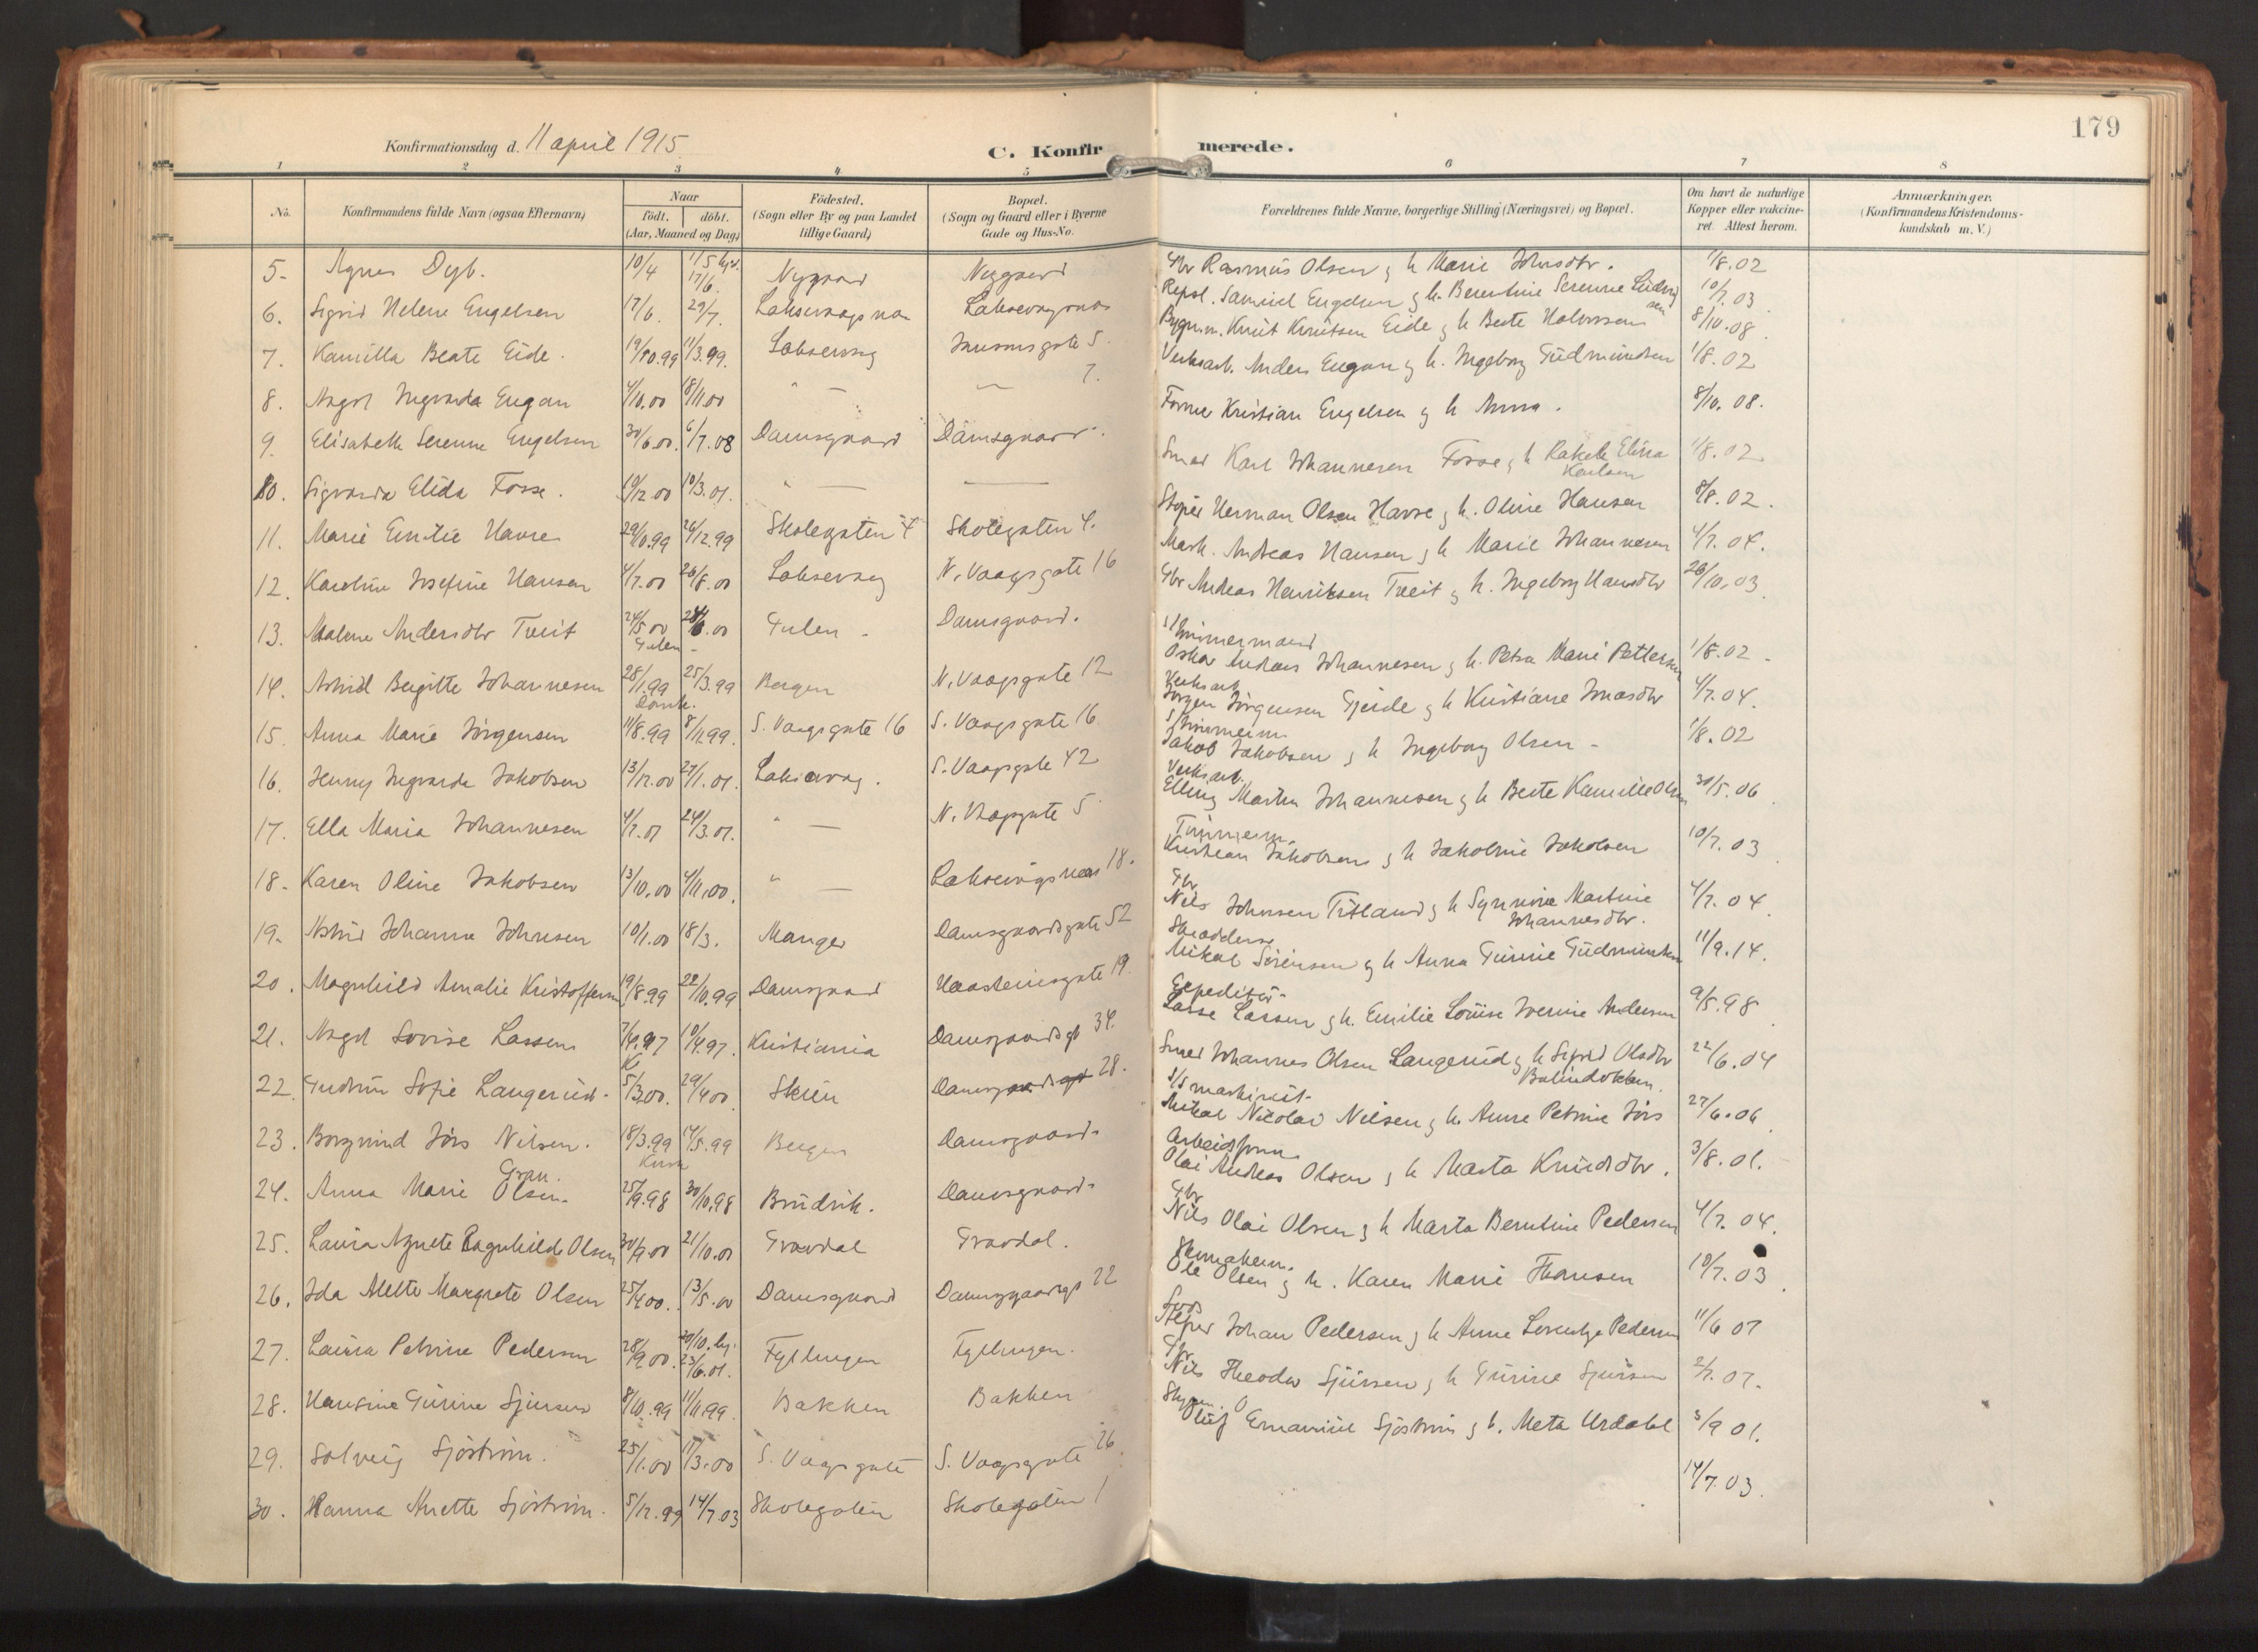 179
Konfirmationsdag d. 11 april 1915.
C. Konfirmerede.
1 2 3 4 5 6 7 8
No.
Konfirmandens fulde Navn (ogsaa Efternavn)
Naar
födt. döbt.
(Aar, Maaned og Dag)
Födested.
(Sogn eller By og paa Landet
tillige Gaard)
Bopæl.
(Sogn og Gaard eller i Byerne
Gade og Hus-No.
Forældrenes fulde Navne, borgerlige Stilling (Næringsvei) og Bopæl.
Om havt de naturlige
Kopper eller vakcine-
ret. Attest herom.
Anmærkninger.
(Konfirmandens Kristendoms-
kundskab m. V.)
5. Agnes Dyb. 10/4 17/6. Nygaard Nygaard Gbr Rasmus Olsen g h Marie Johnsdtr. 1/8.02
6. Sigrid Helene Engelsen 17/6. 29/7. Laksevaagsnes Laksevaagsnes Repsl. Samuel Engelsen g h. Berentine Serenne Ludvigsen 10/7.03
7. Kamilla Beate Eide. 11/3.99. Laksevaag 5. Bygn.m. Knut Knutsen Eide g h Beate 8/10.08
8. Magol Ingvarda Engan 4/10.00 18/11.00 " — — 7. Verksarb. Anders Engan g h. Ingeborg Gudmundsen 1/8.02
9. Elisabeth Serenne Engelsen 30/6.00. 6/7.08 Damsgaard Damsgaard. Kristian Engelsen g h Anna. 8/10.08.
10. Sigvarda Elida Fosse. 19/12.00 10/3.01. " — — Smed Karl Johannesen Fosse g h Rakel Elina
Karlsen 1/8.02
11. Marie Emilie Havre 29/10.99 26/12.99 Skolegaten 4 Skolegaten 4. Støper Herman Olsen Havre g h. Oline Hansen 8/8.02.
12. Karoline Josefine Hansen 4/7.00 26/8.00 Laksevaag N. Vaagsgate 16 Mask. Andreas Hansen g h Marie Johannesen 4/7.04.
13. Malene Andersdtr Tveit 24/5.00 24/6.00 Gulen. Damsgaard. Gbr Andreas Henriksen Tveit g h. Ingeborg Hansdtr 26/10.03
Gulen
14. Astrid Bergitte Johannesen 28/1.99 25/3.99 Bergen N. Vaagsgate 12 Oskar Andreas Johannesen g h. Petra Marie Pettersen 1/8.02
15. Anna Marie Jörgensen 11/8.99 8/11.99. S. Vaagsgate 16 S. Vaagsgate 16. Verksarb.
Jörgen Jörgensen Gjeide g h Kristiane Jonasdtr 4/7.04.
16. Henny Ingvarda Jakobsen 13/12.00 27/1.01. Laksevaag. S. Vaagsgate 42 Jakob Jakobsen g h Ingeborg Olsen 1/8.02
17. Ella Maria Johannesen 4/2.01 24/3.01. " — N. Vaagsgate 5 Verksarb.
Elling Martin Johannesen g h Beate Kamille Olsen 30/5.06
18. Karen Oline Jakobsen 13/10.00 4/11.00. " — Laksevaagsnes 18. Tømmerm.
Kristian Jakobsen g h Jakobine Jakobsen 10/7.03
19. Astrid Johanna Johnsen 10/1.00 18/3. Manger Damsgaardsgate 52 Gbr
Nils Johnsen Titland g h Synnøve Martine
Johannesdtr. 4/7.04
20. Magnhild Amalie Kristoffersen 19/8.99 22/10.99 Damsgaard Haasteinsgate 19. Mikal Sörensen g h Anna Gurine Gudmundsen 11/9.14
21. Magol Lovise Lassen 10/4.97. Kristiania Damsgaardsgt 34. Expeditör
Lasse Lassen g h. Emilie Louise Iverine Andersen 9/5.98
22. Gudrun Sofie Langerud. 5/3.00. 29/4.00 Skien 28. Smed Johannes Olsen Langerud g h Sigrid Olsdtr 22/6.04
23. Borgund Jörs Nilsen. 18/3.99 14/5.99 Bergen Damsgaard S/S maskinist
Mikal Nicolai Nilsen g h. Anne Petrine Jörs 27/6.06
24. Anna Marie Olsen Gran. 25/9.98 30/10.98 Brudvik. Damsgaard Arbeidsform.
Olai Andreas Olsen g h Marta Knudsdtr. 3/8.01.
25. Laura Agnete Ragnhild Olsen 30/9.00 21/10.00 Gravdal Gravdal. Gbr
Nils Olai Olsen g h Marta Berntine Pedersen 4/7.04.
26. Ida Mette Margrete Olsen 25/4.00. 13/5.00 Damsgaard Damsgaardsgt 22 Skomakerm.
Ole Olsen g h. Karen Marie Hansen 10/7.03
27. Laura Petrine Pedersen 28/9.00. 23/6.01. Fyllingen Fyllingen. Johan Pedersen g h Anne Pedersen 11/6 07
28. Hansine Gurine Sjursen 8/10.99 11/11.99. Bakken Bakken Gbr
Nils Theodor Sjursen g h Gurine Sjursen 2/7.07.
29. Solveig Sjöström. 25/1.00 17/3.00 S. Vaagsgate S. Vaagsgate 26. Oluf Emanuel Sjöström g h. Meta Urdahl 3/9 01.
30. Hanna Anette Sjöström. 5/12.99 14/7.03 Skolegaten Skolegaten 1 14/7.03.